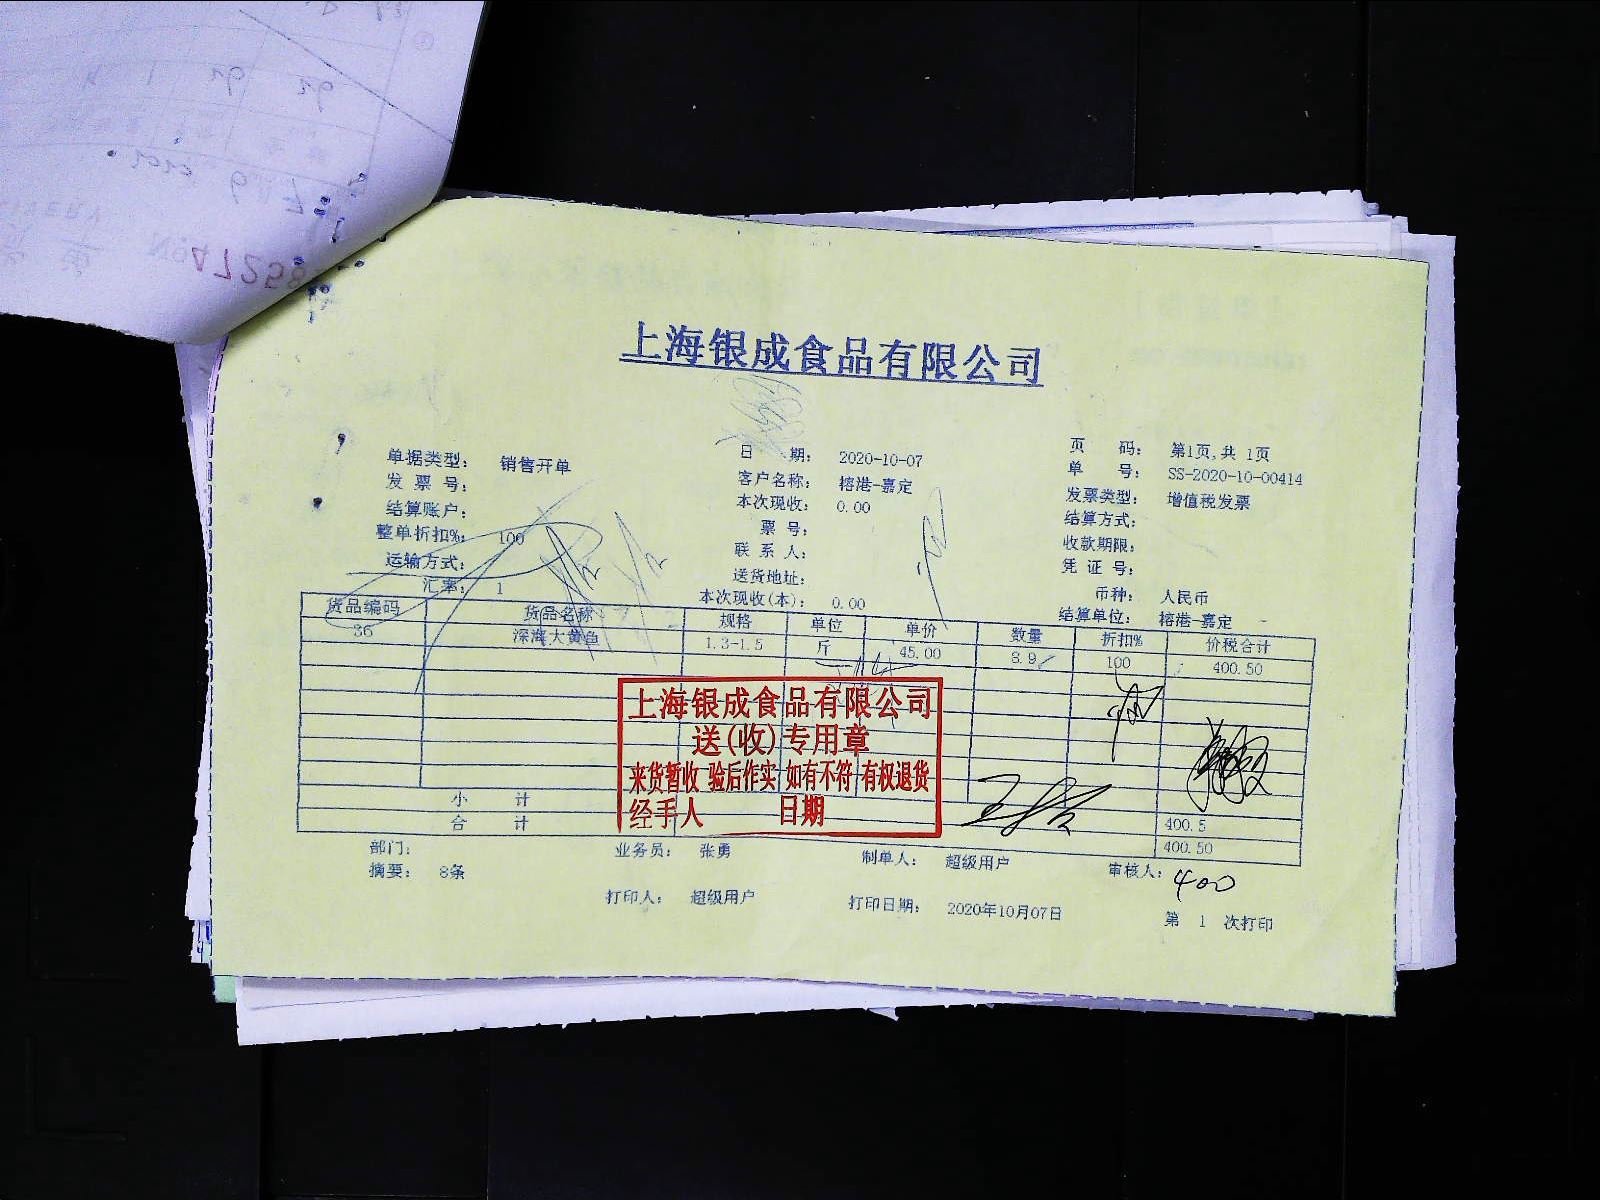 47258
上海银成食品有限公司
单据类型： 销售开单 日 期： 2020-10-07 页 码： 第1页,共 1页
发 票 号： 客户名称： 榕港-嘉定 单 号： SS-2020-10-00414
结算账户： 本次现收： 0.00 发票类型： 增值税发票
整单折扣%： 100 票 号： 结算方式：
运输方式： 联 系 人： 收款期限：
汇率： 1 送货地址： 凭 证 号：
本次现收(本)： 0.00 币种： 人民币
结算单位： 榕港-嘉定
货品编码 货品名称 规格 单位 单价 数量 折扣% 价税合计
36 深海大黄鱼 1.3-1.5 斤 45.00 8.9 100 400.50
上海银成食品有限公司
送(收)专用章
来货暂收 验后作实 如有不符 有权退货
经手人 日期
小 计 400.5
合 计 400.50
部门： 业务员： 张勇 制单人： 超级用户 审核人： 400
摘要： 8条
打印人： 超级用户 打印日期： 2020年10月07日 第 1 次打印